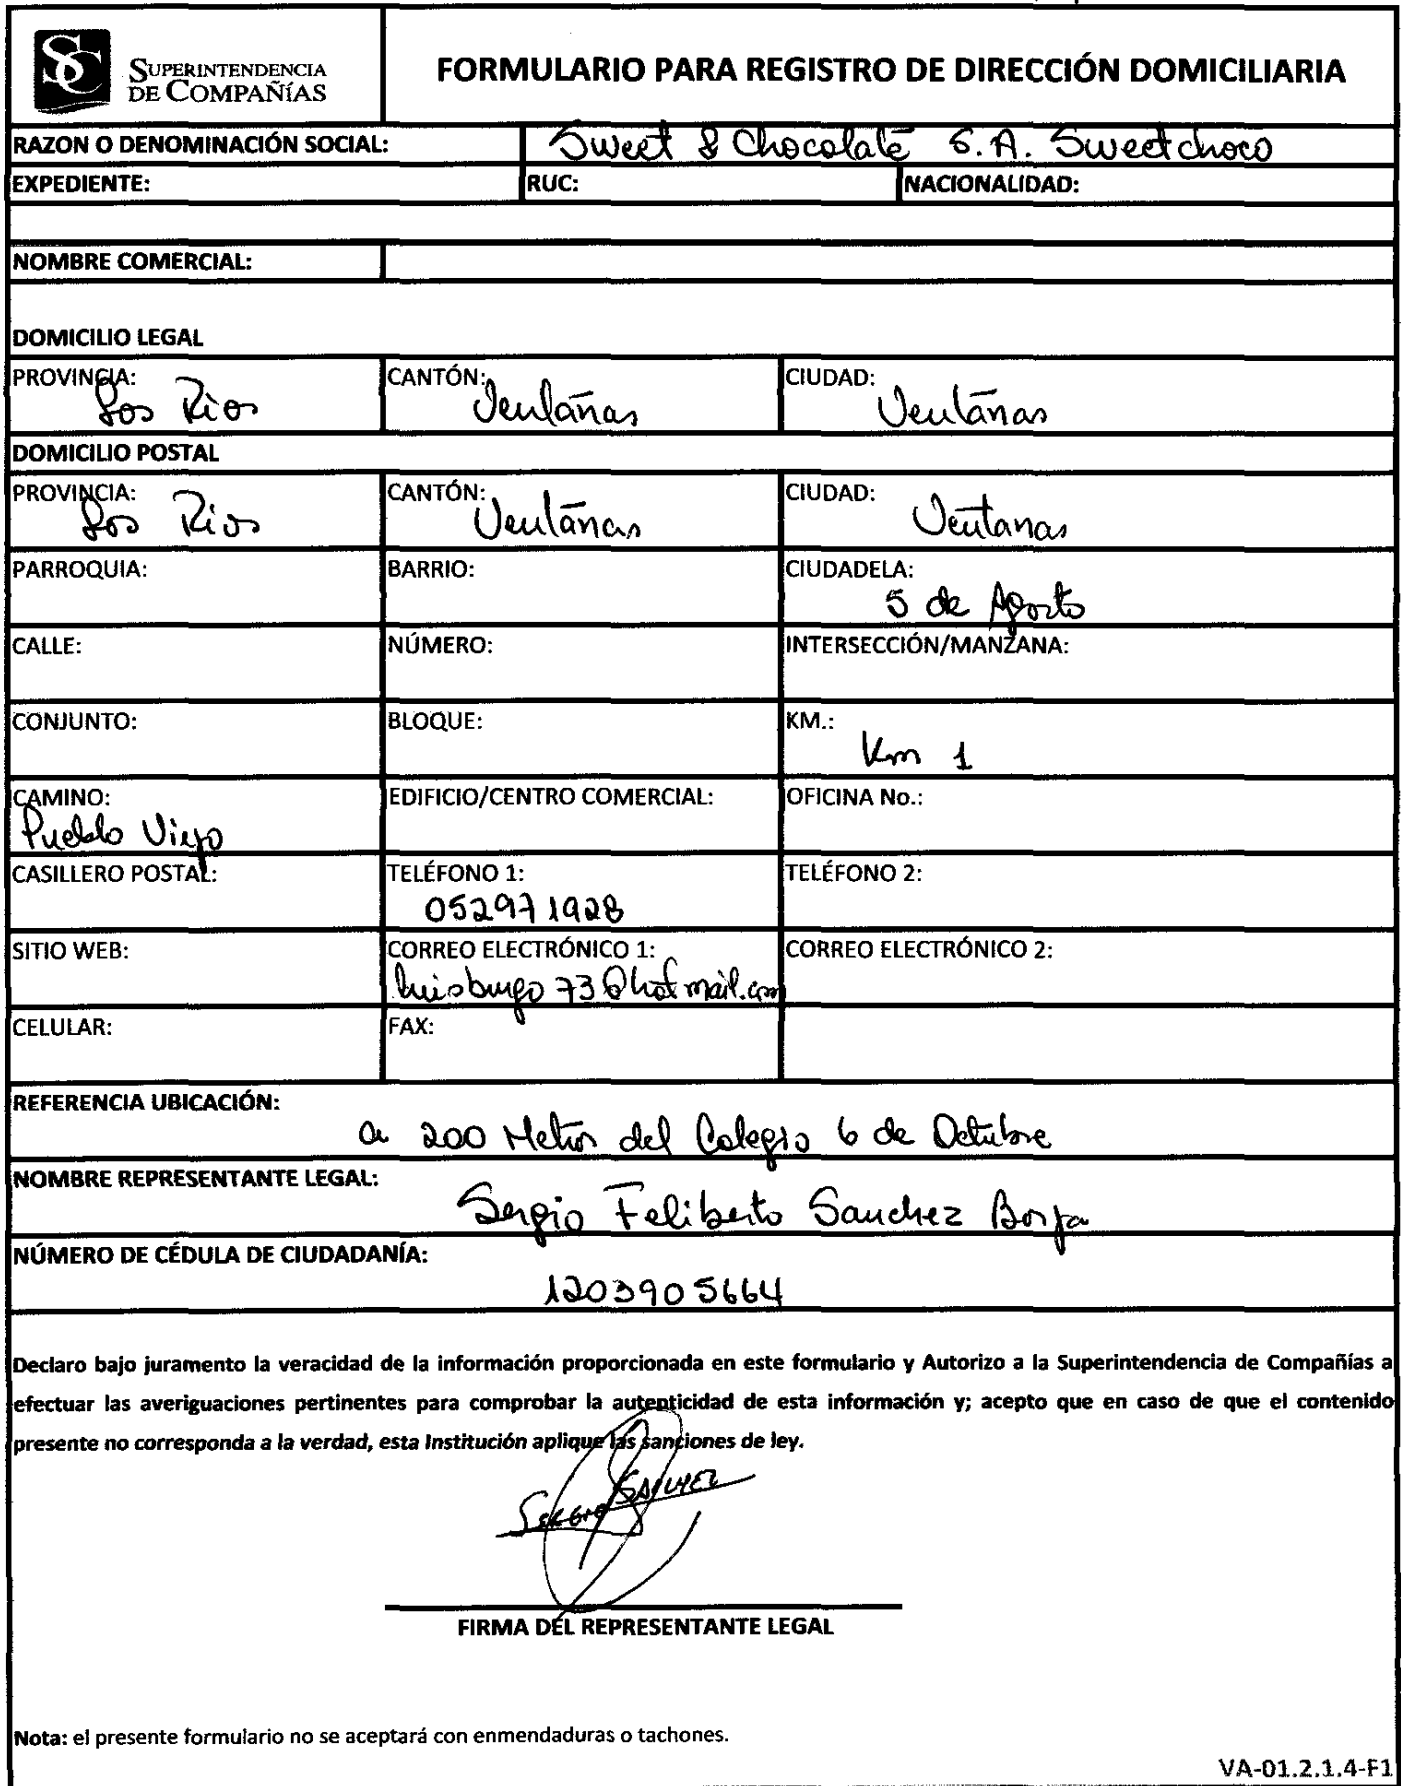 SC SUPERINTENDENCIA
DE COMPAÑÍAS
FORMULARIO PARA REGISTRO DE DIRECCIÓN DOMICILIARIA
RAZON O DENOMINACIÓN SOCIAL: Sweet & Chocolate S.A. Sweetchoco
EXPEDIENTE: RUC: NACIONALIDAD:
NOMBRE COMERCIAL:
DOMICILIO LEGAL
PROVINCIA: CANTÓN: CIUDAD:
Los Rios Ventanas Ventanas
DOMICILIO POSTAL
PROVINCIA: CANTÓN: CIUDAD:
Los Rios Ventanas Ventanas
PARROQUIA: BARRIO: CIUDADELA:
5 de Agosto
CALLE: NÚMERO: INTERSECCIÓN/MANZANA:
CONJUNTO: BLOQUE: KM.:
Km 1
CAMINO: EDIFICIO/CENTRO COMERCIAL: OFICINA No.:
Pueblo Viejo
CASILLERO POSTAL: TELÉFONO 1: TELÉFONO 2:
052971928
SITIO WEB: CORREO ELECTRÓNICO 1: CORREO ELECTRÓNICO 2:
luisburgo73@hotmail.com
CELULAR: FAX:
REFERENCIA UBICACIÓN:
a 200 Metros del Colegio 6 de Octubre
NOMBRE REPRESENTANTE LEGAL:
Sergio Feliberto Sanchez Borja
NÚMERO DE CÉDULA DE CIUDADANÍA:
1203905664
Declaro bajo juramento la veracidad de la información proporcionada en este formulario y Autorizo a la Superintendencia de Compañías a
efectuar las averiguaciones pertinentes para comprobar la autenticidad de esta información y; acepto que en caso de que el contenido
presente no corresponda a la verdad, esta Institución aplique las sanciones de ley.
Sergio Sanchez
FIRMA DEL REPRESENTANTE LEGAL
Nota: el presente formulario no se aceptará con enmendaduras o tachones.
VA-01.2.1.4-F1